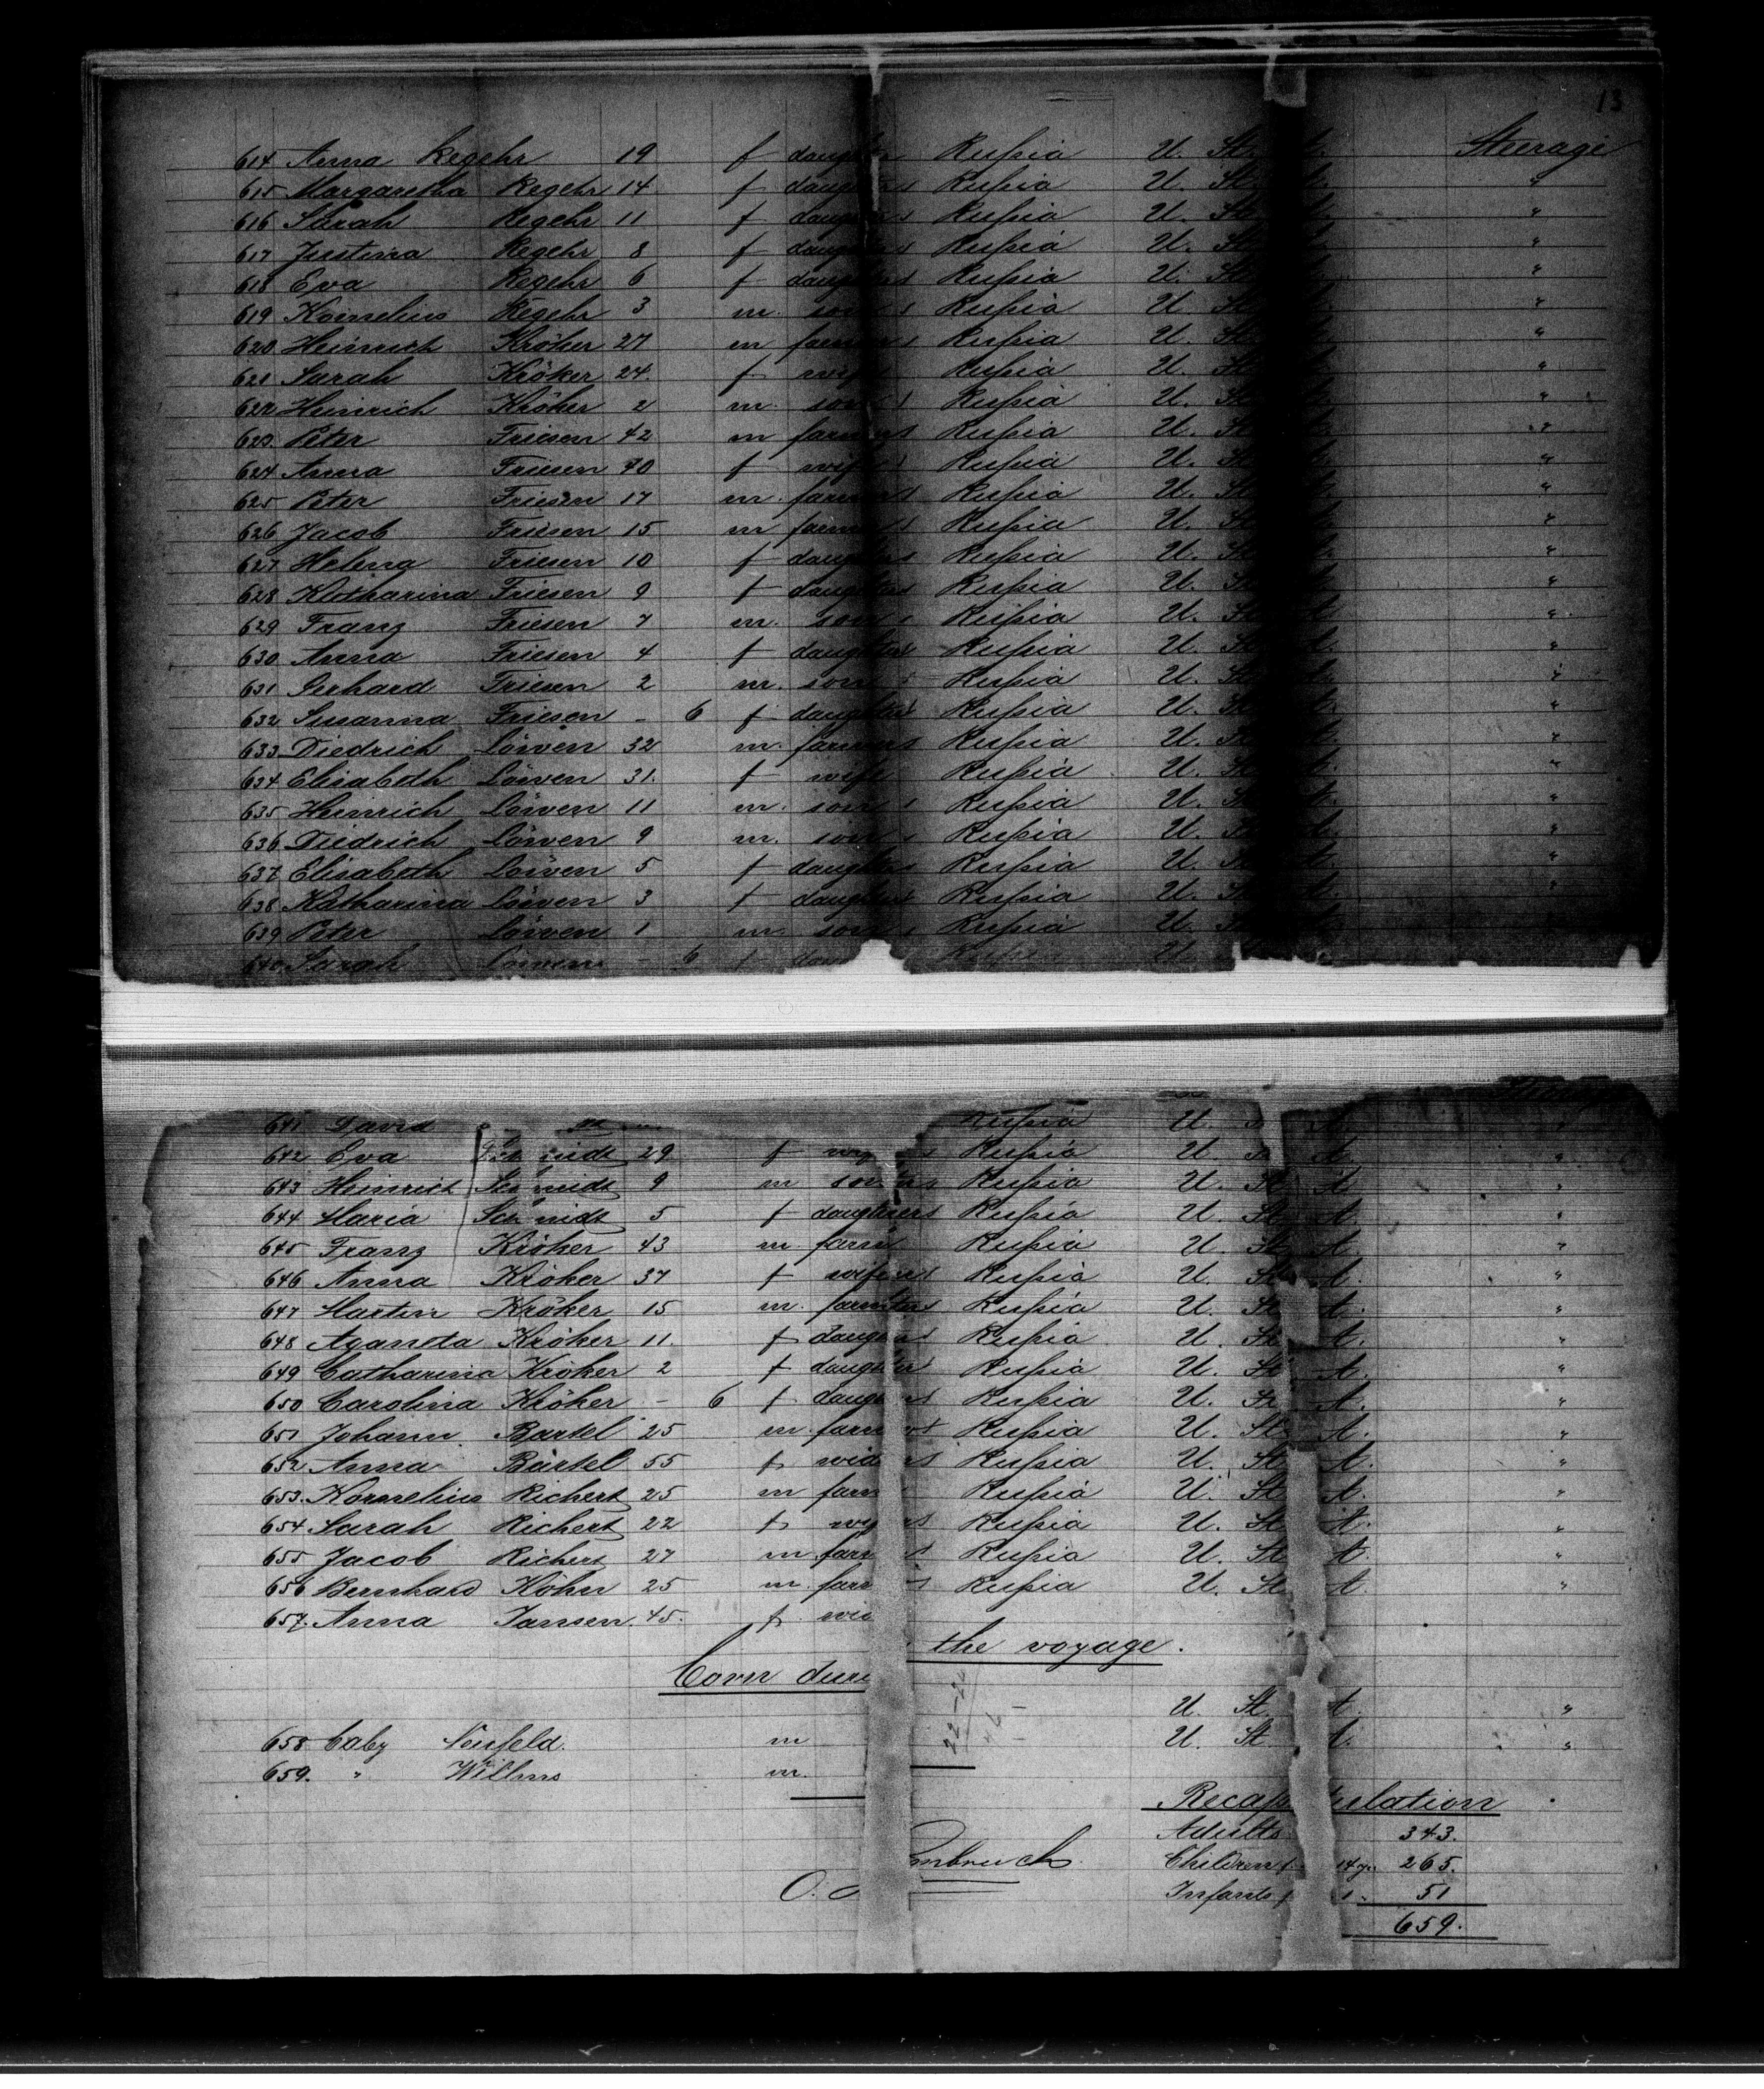 13
614 Anna Regehr 19 f daughters Rußia U. St. Steerage
615 Margaretha Regehr 14 f daughters Rußia U. St. "
616 Sarah Regehr 11 f daughters Rußia U. St. "
617 Justina Regehr 8 f daughters Rußia U. St. "
618 Eva Regehr 6 f daughters Rußia U. St. "
619 Kornelius Regehr 3 m. sons Rußia U. St. "
620 Heinrich Kröker 27 m farmers Rußia U. St. "
621 Sarah Kröker 24. f wife Rußia U. St. "
622 Heinrich Kröker 2 m. sons Rußia U. St. "
623. Peter Friesen 42 m farmers Rußia U. St. "
624 Anna Friesen 40 f wife Rußia U. St. "
625 Peter Friesen 17 m. farmers Rußia U. St. "
626 Jacob Friesen 15 m farmers Rußia U. St. "
627 Helena Friesen 10 f daughters Rußia U. St. "
628 Katharina Friesen 9 f daughters Rußia U. St. "
629 Franz Friesen 7 m. sons Rußia U. St. A "
630 Anna Friesen 4 f daughters Rußia U. St. A. "
631 Gerhard Friesen 2 m. sons Rußia U. St. A. "
632 Susanna Friesen - 6 f daughters Rußia U. St. A. "
633 Diedrich Löwen 32 m. farmers Rußia U. St. A. "
634 Elisabeth Löwen 31. f wife Rußia U. St. A. "
635 Heinrich Löwen 11 m. sons Rußia U. St. A. "
636 Diedrich Löwen 9 m. sons Rußia U. St. A. "
637 Elisabeth Löwen 5 f daughters Rußia U. St. A. "
638 Katharina Löwen 3 f daughters Rußia U. St. A. "
639 Peter Löwen 1 m. sons Rußia U. St. A. "
640 Sarah Löwen - 6 f Rußia U.
641 David Rußia U. A. "
642 Eva Schmidt 29 f Rußia U. St. A. "
643 Heinrich Schmidt 9 m sons Rußia U. St. A "
644 Maria Schmidt 5 f daughters Rußia U. St. A "
645 Franz Kröker 43 m. farm Rußia U. St. A "
646 Anna Kröker 37 f wife Rußia U. St. A. "
647 Martin Kröker 15 m. farmers Rußia U. St. A. "
648 Aganeta Kröker 11. f daughters Rußia U. St. A. "
649 Catharina Kröker 2 f daughters Rußia U. St. A. "
650 Carolina Kröker - 6 f daughters Rußia U. St. A. "
651 Johann Bartel 25 m farmers Rußia U. St. A. "
652 Anna Bartel 55 f wid Rußia U. St. A. "
653. Kornelius Richert 25 m farm Rußia U. St. A. "
654 Sarah Richert 22 f Rußia U. St. A. "
655 Jacob Richert 27 m. farm Rußia U. St. A. "
656 Bernhard Köhn 25 m. farm Rußia U. St. A. "
657. Anna Jansen. 45. f. wid
Born during the voyage.
U. St. A. "
658 baby Neufeld. m U. St. A. "
659. " Willms m.
Recapitulation
Adults 343.
Children 14 y. 265.
Infants 1. 51
659.